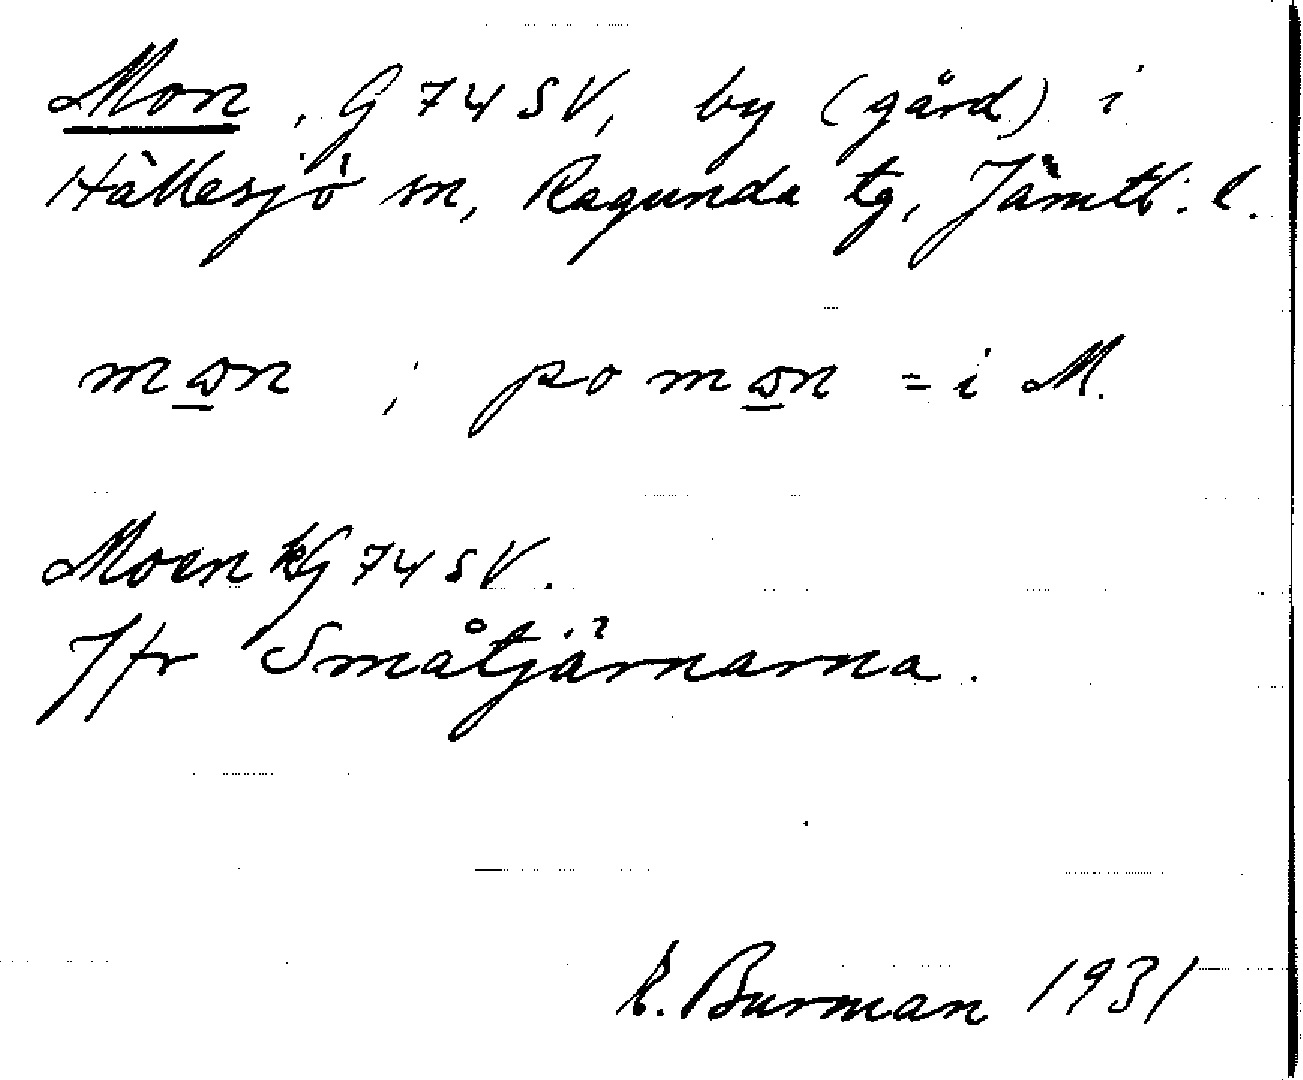 Mon, G 74 SV, by (gård) i
Hällesjö sn, Ragunda tg, Jämtl: l.
mɷn ; po mɷn = i M.
Moen kG 74 SV.
Jfr Småtjärnarna.
R. Burman 1931